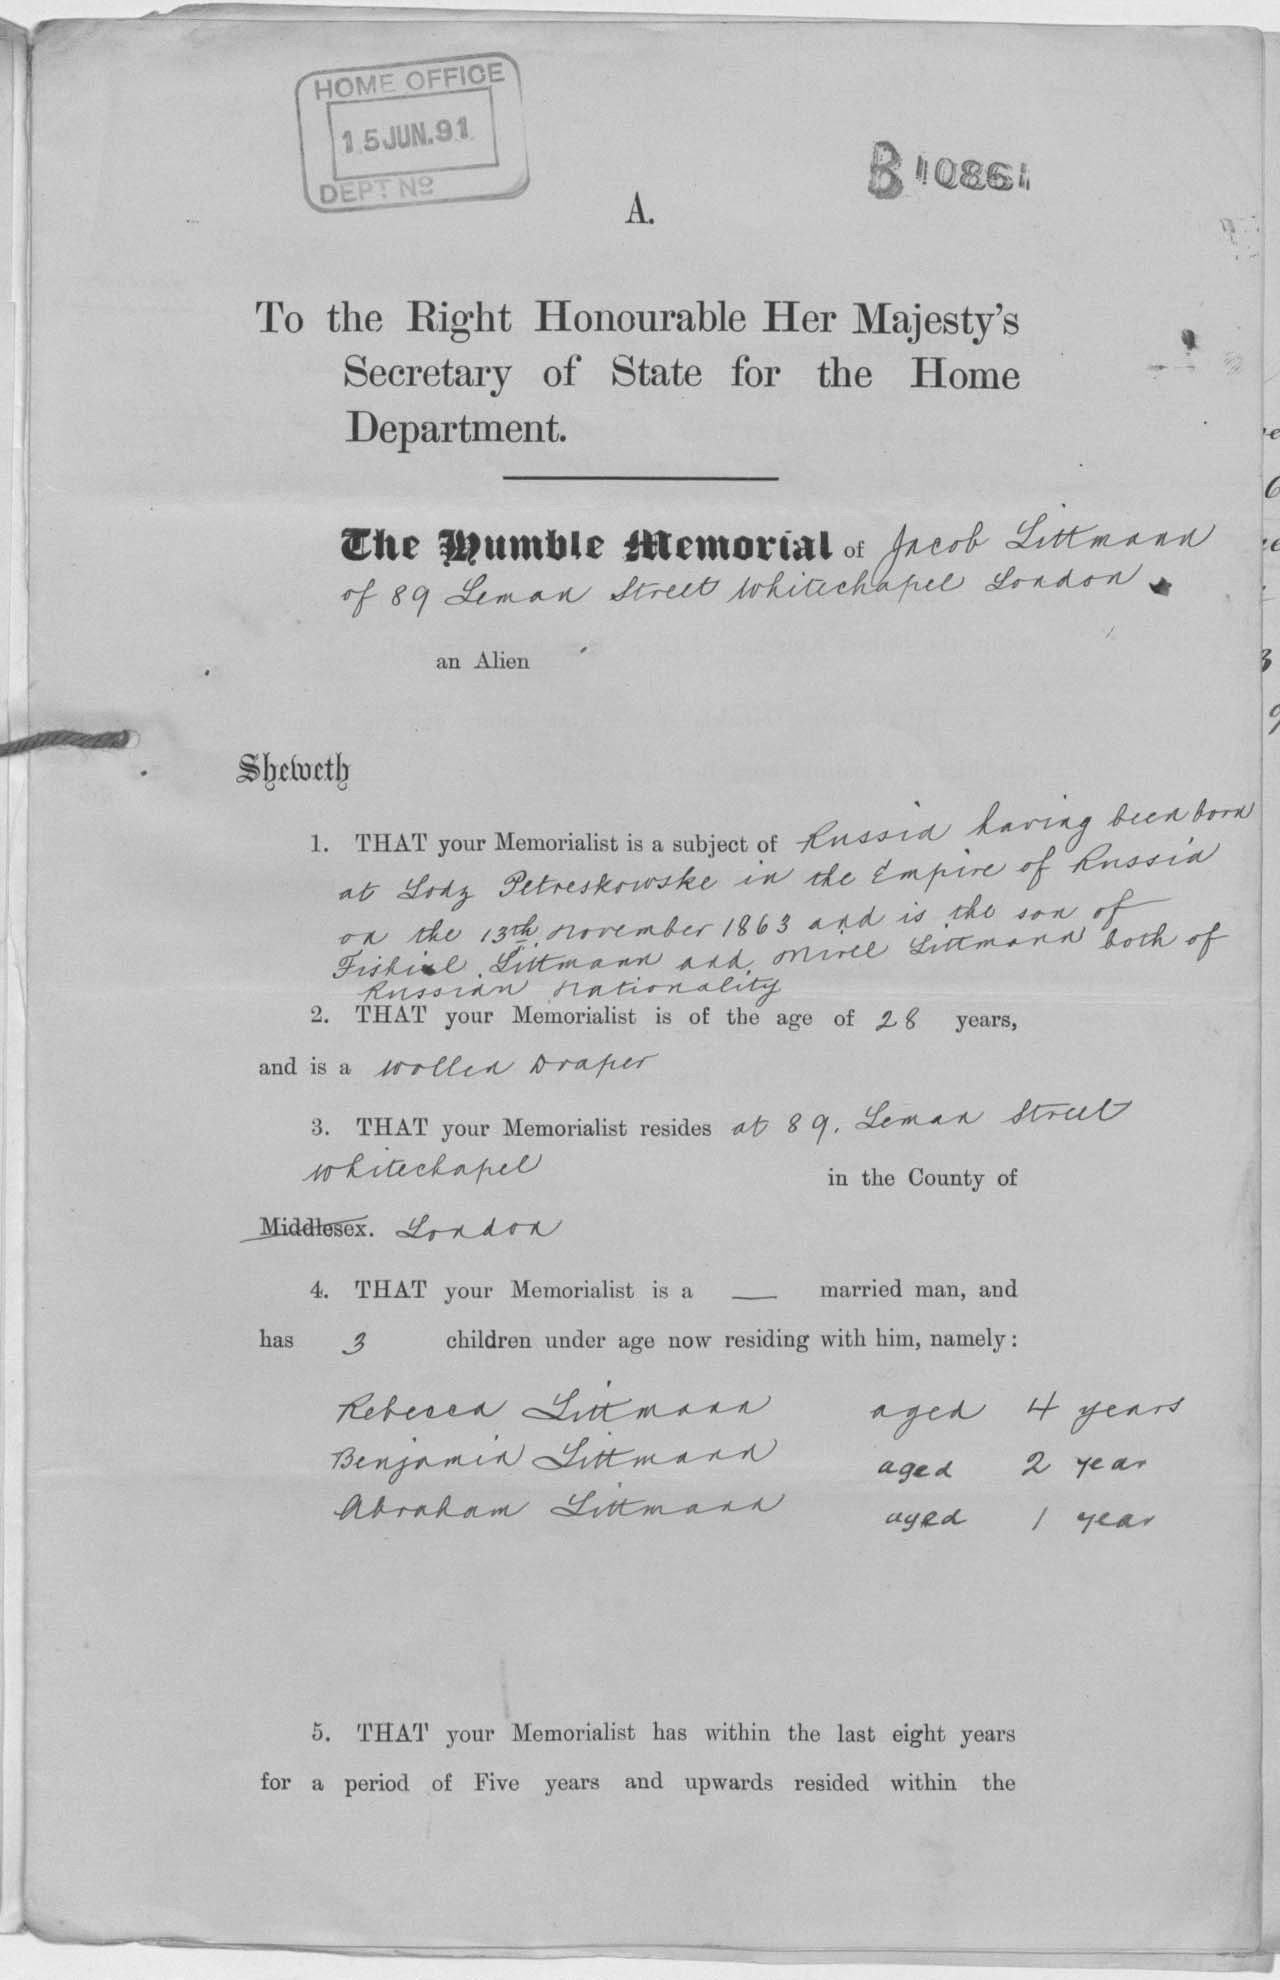 HOME OFFICE
15 JUN. 91
DEPT No
B10861
A.
To the Right Honourable Her Majesty's
Secretary of State for the Home
Department.
The Humble Memorial of Jacob Littmann
of 89 Leman Street Whitechapel London
an Alien
Sheweth
1. THAT your Memorialist is a subject of Russia having been born
at Lodz Petreskowske in the Empire of Russia
on the 13th November 1863 and is the son of
Fishiel Littmann and Mirel Littmann both of
Russian Nationality
2. THAT your Memorialist is of the age of 28 years,
and is a Wollen Draper
3. THAT your Memorialist resides at 89. Leman Street
Whitechapel in the County of
Middlesex. London
4. THAT your Memorialist is a — married man, and
has 3 children under age now residing with him, namely:
Rebecca Littmann aged 4 years
Benjamin Littmann aged 2 year
Abraham Littmann aged 1 year
5. THAT your Memorialist has within the last eight years
for a period of Five years and upwards resided within the